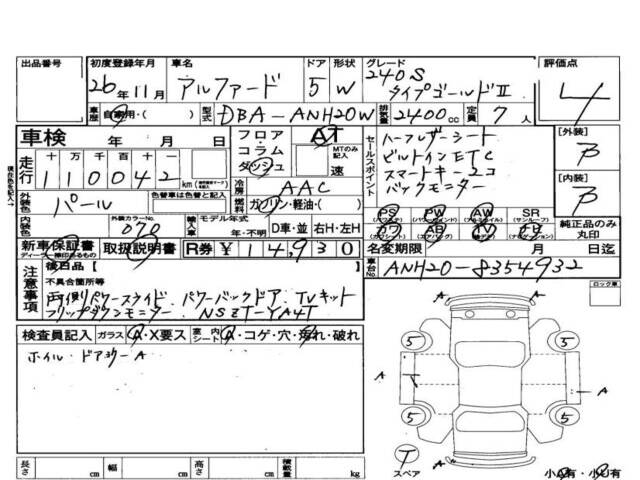 出品番号 初度登録年月 車名 ドア 形状 グレード 評価点
26年11月 アルファード 5 W 240S
タイプゴールドⅡ 4
車歴 自家用・( ) 型式 DBA-ANH20W 排気量 2400cc 定員 7人
車検 年 月 日 フロア・コラム・ダッシュ AT MTのみ記入 速 セールスポイント ハーフレザーシート [外装]
ビルトインETC
スマートキー2コ [内装]
バックモニター
走行 十万千百十一
110042 km
冷房 AAC
外装色 パール 色替車は色替と記入 燃料 ガソリン・軽油・( )
PS PW AW SR
(パワステ) (パワーウィンド) (アルミホイル) (サンルーフ)
カワ AB TV ナビ
純正品のみ丸印
内装色 外装カラーNo. 070 輸入車 モデル年式 年・不明 D車・並 右H・左H
新車保証書 取扱説明書 R券 ¥14,930 名変期限 月 日迄
車台No. ANH20-8354932
注意事項 後日品【 】
不具合箇所等
両側パワースライド．パワーバックドア．TVキット
フリップダウンモニター．NSZT-YA4T
検査員記入 ガラス A・X要ス 室内 A・コゲ・穴・汚れ・破れ
ホイル・ドアミラーA
ロック車
A
5 5
A T A
5 5
T
スペア
A
小A有・小U有
長さ cm 幅 cm 高さ cm 積載量 kg